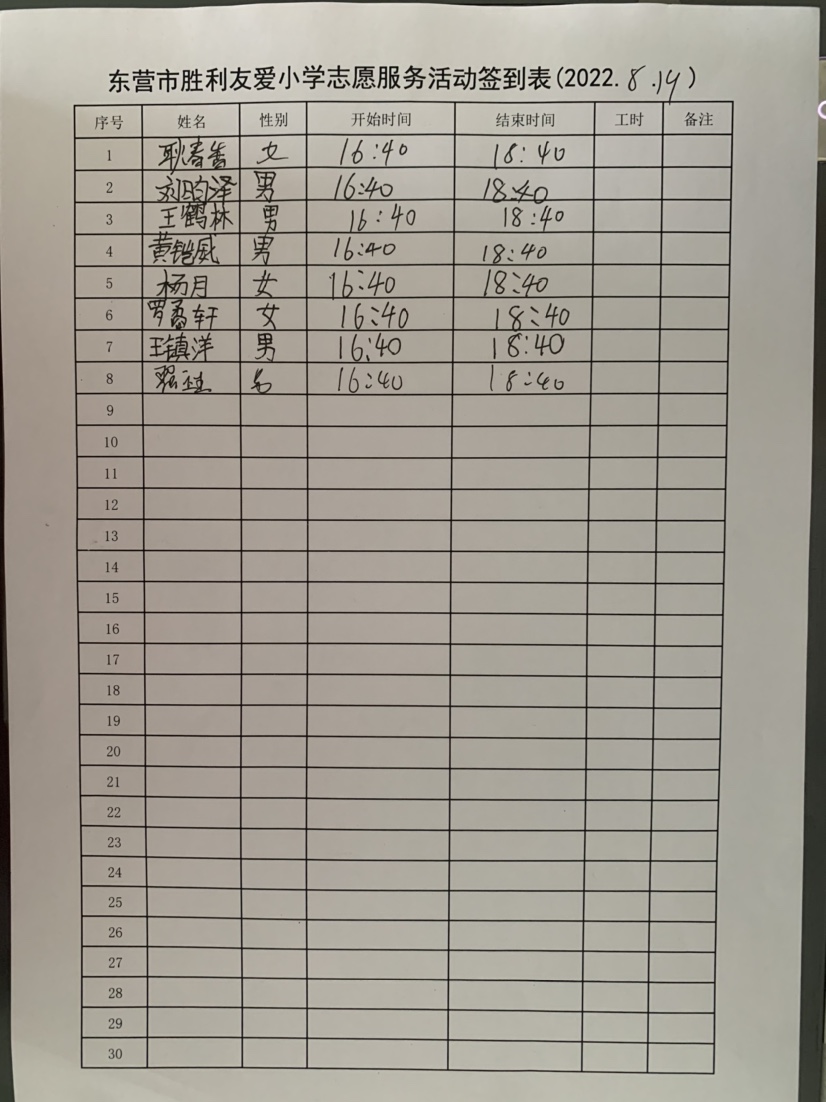 东营市胜利友爱小学志愿服务活动签到表(2022.8.14)
序号 姓名 性别 开始时间 结束时间 工时 备注
1 耿春 女 16:40 18:40
2 刘昀泽 男 16:40 18:40
3 王鹤林 男 16:40 18:40
4 黄铠威 男 16:40 18:40
5 杨月 女 16:40 18:40
6 罗轩 女 16:40 18:40
7 王镇洋 男 16:40 18:40
8 16:40 18:40
9
10
11
12
13
14
15
16
17
18
19
20
21
22
23
24
25
26
27
28
29
30